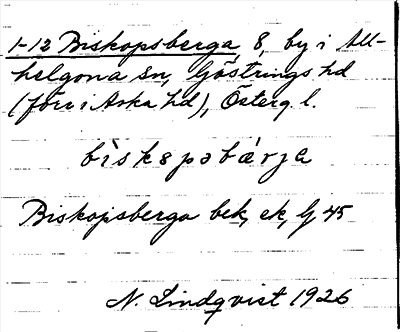 1-12 Biskopsberga 8, by i All-
helgona sn, Göstrings hd
(förr i Aska hd), Österg. l.
bìskɷpəbárja
Biskopsberga bek, ek, Gj 45
N. Lindqvist 1926